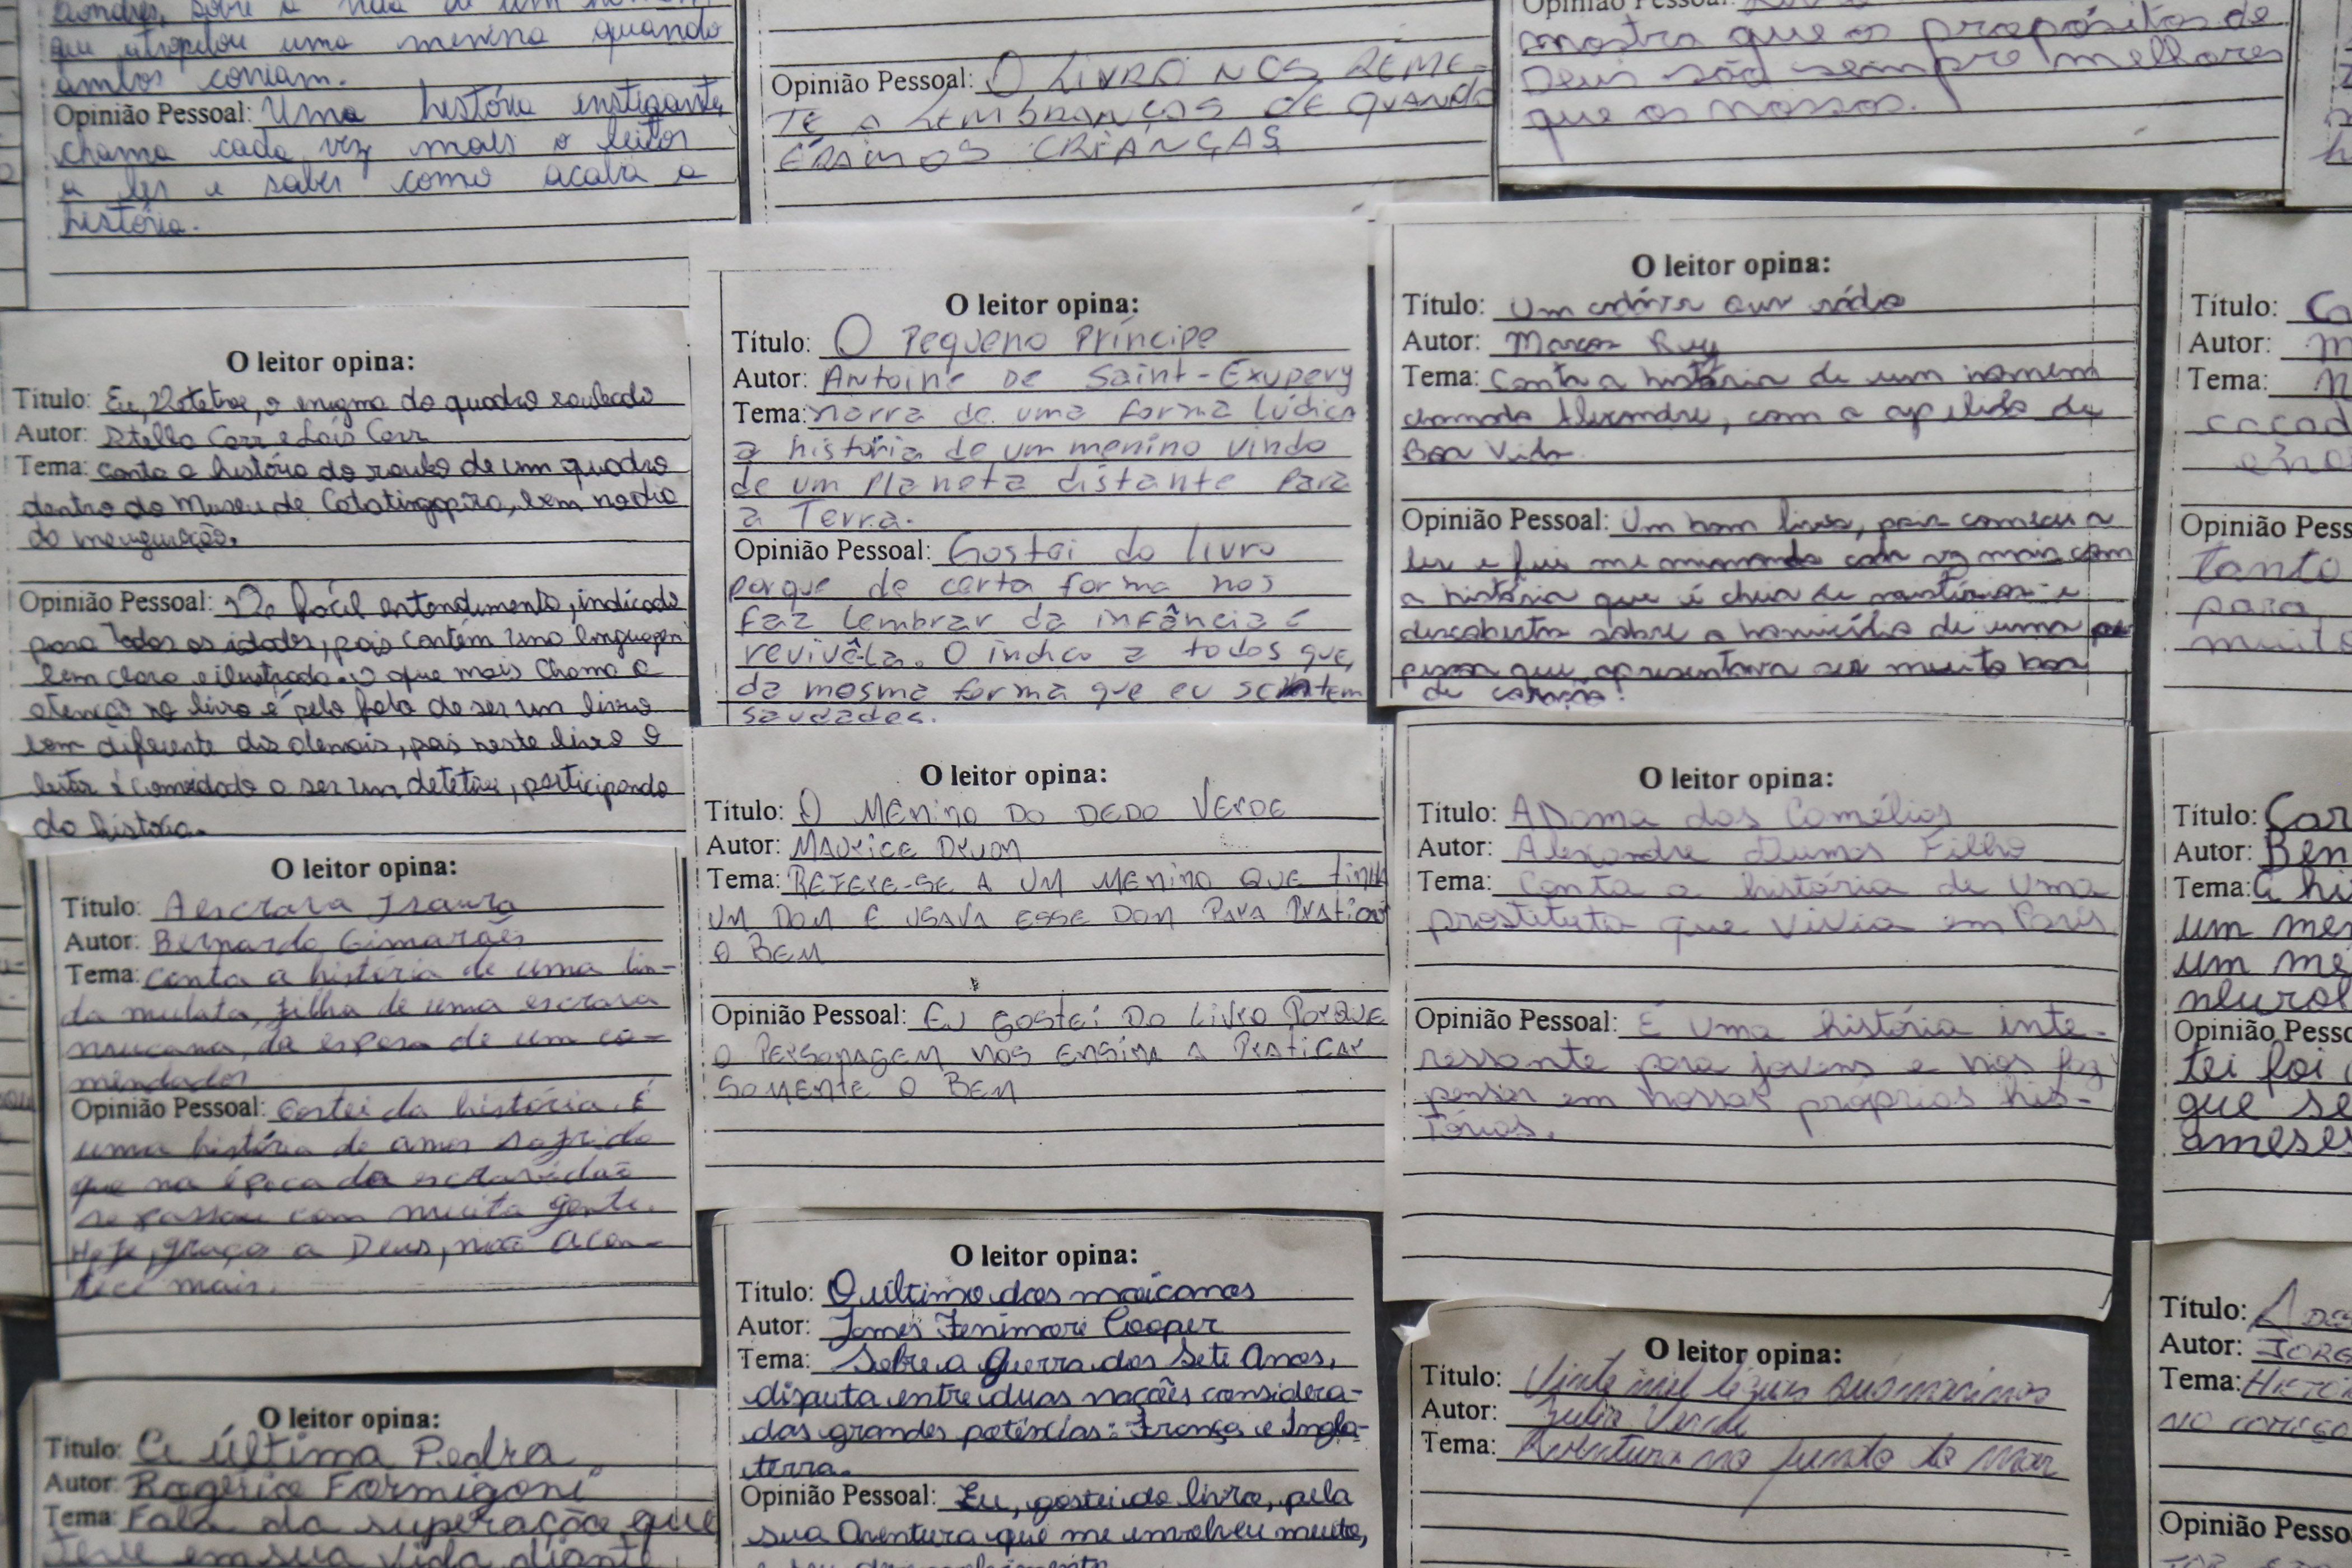 que atropelou uma menina quando
ambos corriam.
Opinião Pessoal: Uma história instigante,
chama cada vez mais o leitor
a ler e saber como acaba a
história.
Opinião Pessoal: O LIVRO NOS REME-
TE A LEMBRANÇAS DE QUANDO
ÉRAMOS CRIANÇAS
Opinião Pessoal:
mostra que os propósitos de
Deus são sempre melhores
que os nossos.
O leitor opina:
Título: Eu, Detetive, o enigma do quadro roubado
Autor: Stella Carr e Laís Carr
Tema: conta a história do roubo de um quadro
dentro do Museu de Catatingapira, bem no dia
da inauguração.
Opinião Pessoal: De fácil entendimento, indicado
para Todas as idades, pois contém uma linguagem
bem clara e ilustrada. O que mais chama a
atenção no livro é pelo fato de ser um livro
bem diferente dos demais, pois neste livro o
leitor é convidado a ser um detetive, participando
da história.
O leitor opina:
Título: O Pequeno Príncipe
Autor: Antoine de Saint-Exupery
Tema: narra de uma forma lúdica
a história de um menino vindo
de um planeta distante para
a Terra.
Opinião Pessoal: Gostei do livro
porque de certa forma nos
faz lembrar da infância e
revivê-la. O indico a todos que,
da mesma forma que eu sentem
saudades.
O leitor opina:
Título: Um cadáver ouve rádio
Autor: Marcos Rey
Tema: Conta a história de um homem
chamado Alexandre, com o apelido de
Boa Vida
Opinião Pessoal: Um bom livro, pois comecei a
ler e fui me cada vez mais com
a história que é cheia de mistérios e
descobertas sobre o homicídio de uma
pessoa que apresentava ser muito boa
de coração!
O leitor opina:
Título: A escrava Isaura
Autor: Bernardo Gimarães
Tema: conta a história de uma lin-
da mulata, filha de uma escrava
mucama, da esposa de um co-
mendador
Opinião Pessoal: Gostei da história. É
uma história de amor sofrido
que na época da escravidão
se passou com muita gente.
Hoje, graças a Deus, não acon-
tece mais.
O leitor opina:
Título: O MENINO DO DEDO VERDE
Autor: MAURICE DRUON
Tema: REFERE-SE A UM MENINO QUE TINHA
UM DOM E USAVA ESSE DOM PARA PRATICAR
O BEM
Opinião Pessoal: EU GOSTEI DO LIVRO PORQUE
O PERSONAGEM NOS ENSINA A PRATICAR
SOMENTE O BEM
O leitor opina:
Título: A Dama das Camélias
Autor: Alexandre Dumas Filho
Tema: Conta a história de uma
prostituta que vivia em Paris
Opinião Pessoal: É uma história inte-
ressante para jovens e nos faz
pensar em nossas próprias his-
tórias.
O leitor opina:
Título: A última Pedra
Autor: Rogério Formigoni
Tema: Fala da superação que
teve em sua vida diante
O leitor opina:
Título: O último dos moicanos
Autor: James Fenimore Cooper
Tema: Sobre a Guerra dos Sete Anos,
disputa entre duas nações considera-
das grandes potências: França e Ingla-
terra.
Opinião Pessoal: Eu, gostei do livro, pela
sua Aventura que me envolveu muito,
O leitor opina:
Título: Vinte mil léguas submarinas
Autor: Julio Verne
Tema: Aventura no fundo do mar
Título:
Autor:
Tema:
Opinião Pess
tanto
para
muito
Título: Car
Autor: Ben
Tema: A hi
um me
um me
neurol
Opinião Pesso
tei foi
que se
ameses
Título:
Autor: JORG
Tema:
NO COMEÇO
Opinião Pesso